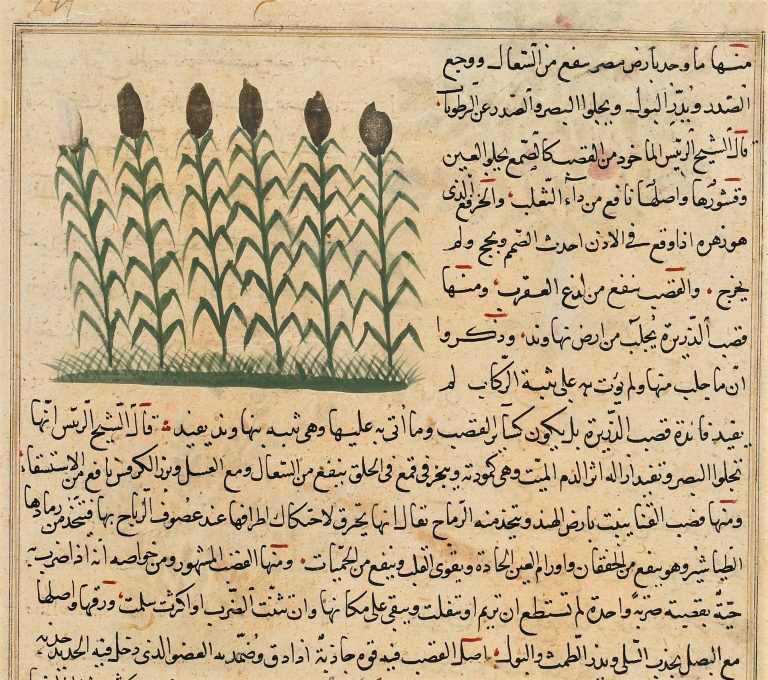 منها ما وجد بارض مصر ينفع من السعال ووجع
الصدر ويدر البول ويجلوا البصر والصدر عن الرطوبات
قال الشيخ الرئيس الماخوذ من القصب كالصمغ يجلو العين
وقشورها واصلها نافع من داء الثعلب والخرقع الذى
هو زهره اذا وقع فى الاذن احدث الصمم ولحج ولم
يخرج والقصب ينفع من لدغ العقرب ومنها
قصب الذريرة يجلب من ارض نهاوند وذكروا
ان ما جلب منها ولم يؤت به على ثنية الركاب لم
يفيد فائدة قصب الذريرة بل يكون كسائر القصب وما أتى به عليها وهى ثنية بنهاوند يفيد قال الشيخ الرئيس انها
تجلوا البصر وتفيد ازالة اثر الدم الميت وهى كمودته ويبخر فى قمع فى الحلق ينفع من السعال ومع العسل وبزر الكرفس نافع من الاستسقاء
ومنها قصب القنا ينبت بارض الهند ويتخذ منه الرماح يقال انها يحترق لاحتكاك اطرافها عند عصوف الرياح بها فيتخذ من رمادها
الطباشير وهو ينفع من الخفقان واورام العين الحادة ويقوى القلب وينفع من الحميات ومنها القصب المشهور ومن خواصه انه اذا ضرب به
حية بقصبته ضربة واحدة لم تستطع ان تريم او تنفلت ويبقى على مكانها وان ثنت الضرب او اكثرت سلت ورقها واصلها
مع البصل يجذب السلى ويدر الطمث والبول اصل القصب فيه قوه جاذبة اذا دق وضمد به العضو الذى دخل فيه الحديد جذبه